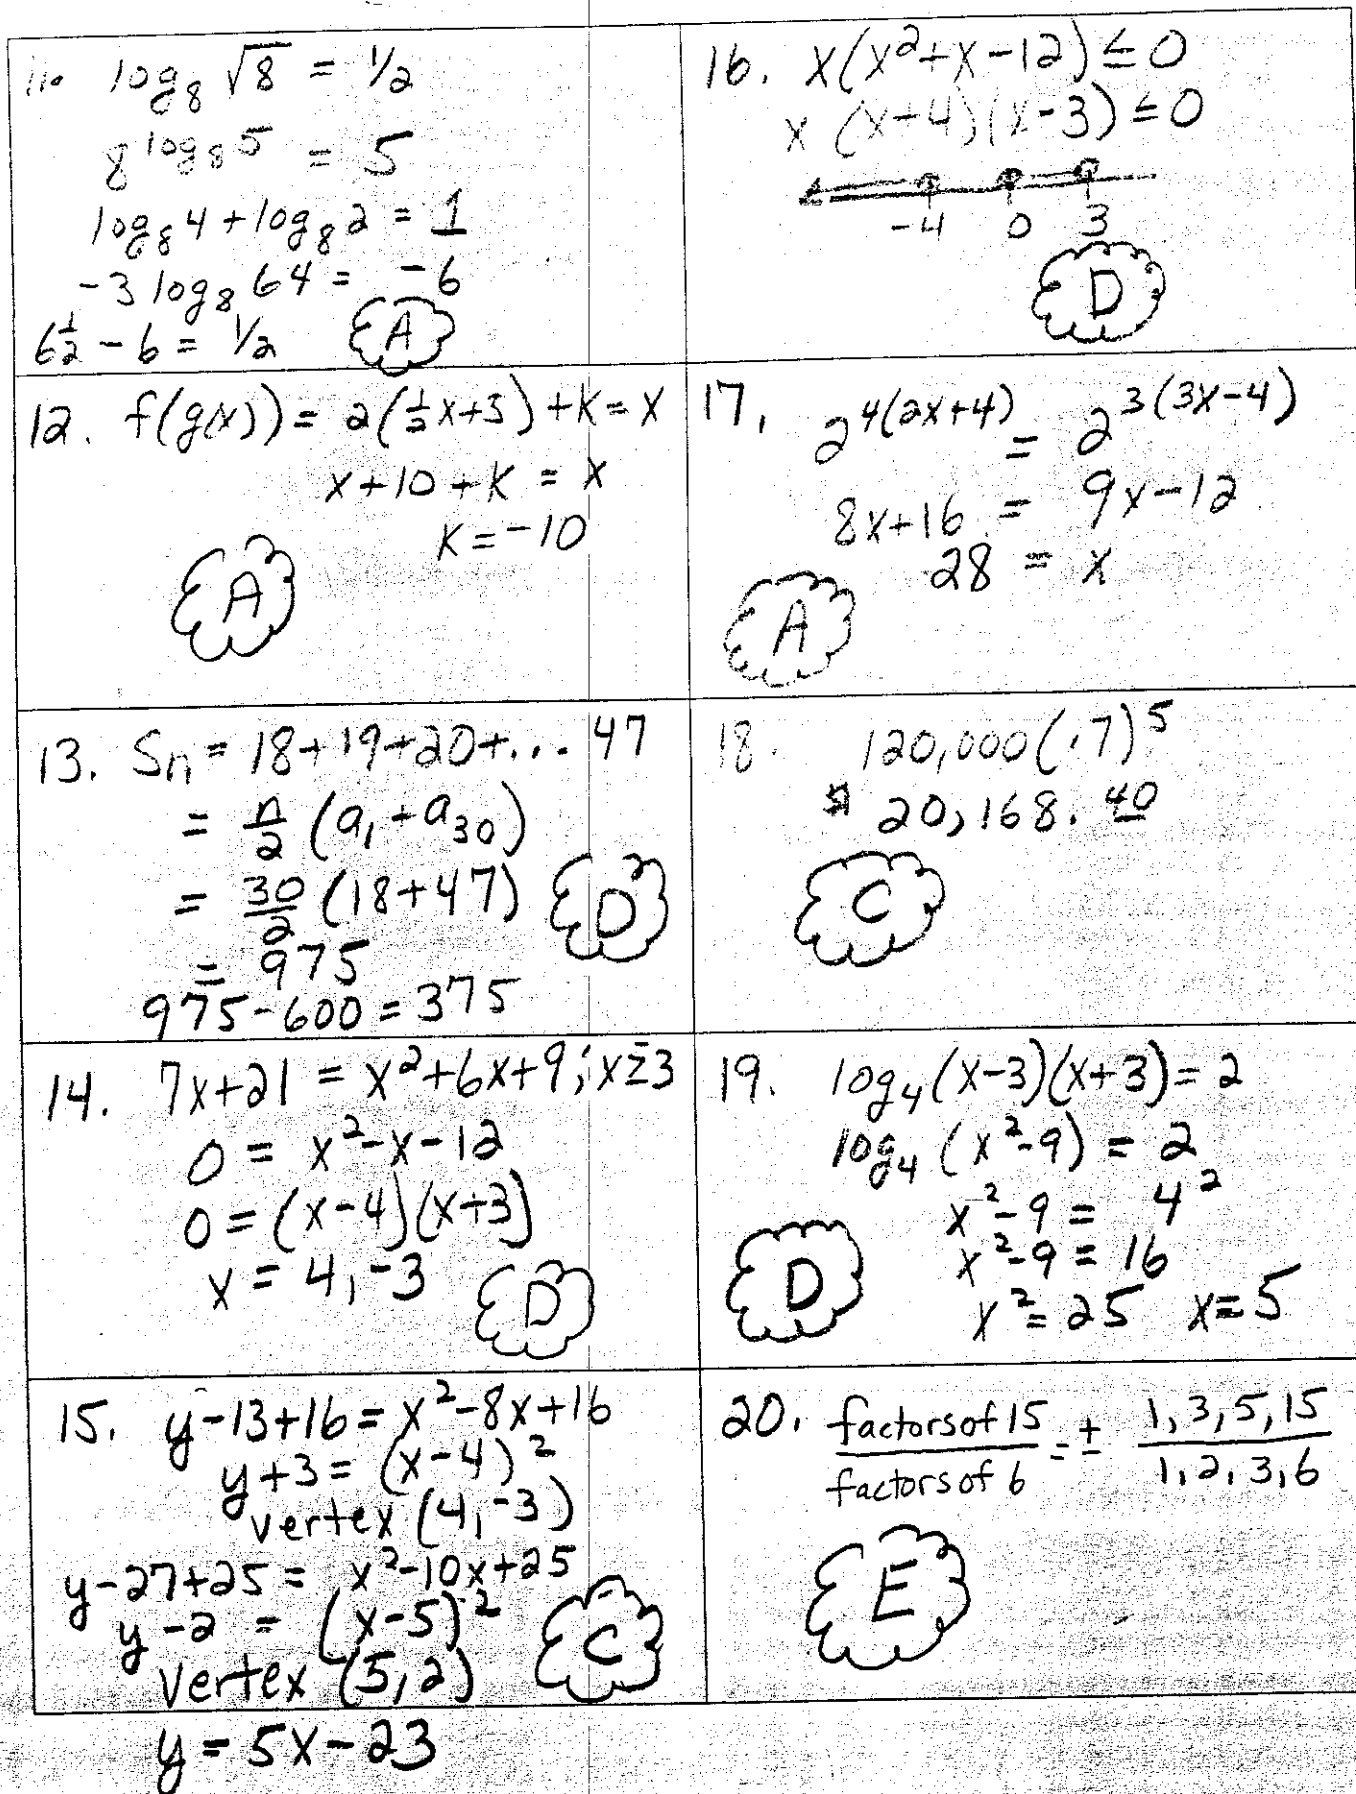 11. log₈ √8 = 1/2
8^log₈5 = 5
log₈4 + log₈2 = 1
-3 log₈ 64 = -6
6 1/2 - 6 = 1/2
A
12. f(g(x)) = 2(1/2x+5) + K = x
x+10+K = x
K = -10
A
13. Sn = 18+19+20+... 47
= n/2 (a₁+a₃₀)
= 30/2 (18+47)
= 975
975-600 = 375
D
14. 7x+21 = x²+6x+9; x≥-3
0 = x²-x-12
0 = (x-4)(x+3)
x = 4, -3
D
15. y-13+16 = x²-8x+16
y+3 = (x-4)²
vertex (4,-3)
y-27+25 = x²-10x+25
y-2 = (x-5)²
vertex (5,2)
C
y = 5x-23
16. x(x²+x-12) ≤ 0
x(x+4)(x-3) ≤ 0
-4 0 3
D
17. 2^4(2x+4) = 2^3(3x-4)
8x+16 = 9x-12
28 = x
A
18. 120,000(.7)⁵
$ 20,168.40
C
19. log₄(x-3)(x+3) = 2
log₄(x²-9) = 2
x²-9 = 4²
x²-9 = 16
x² = 25 x=5
D
20. factors of 15/factors of 6 = ± 1,3,5,15/1,2,3,6
E